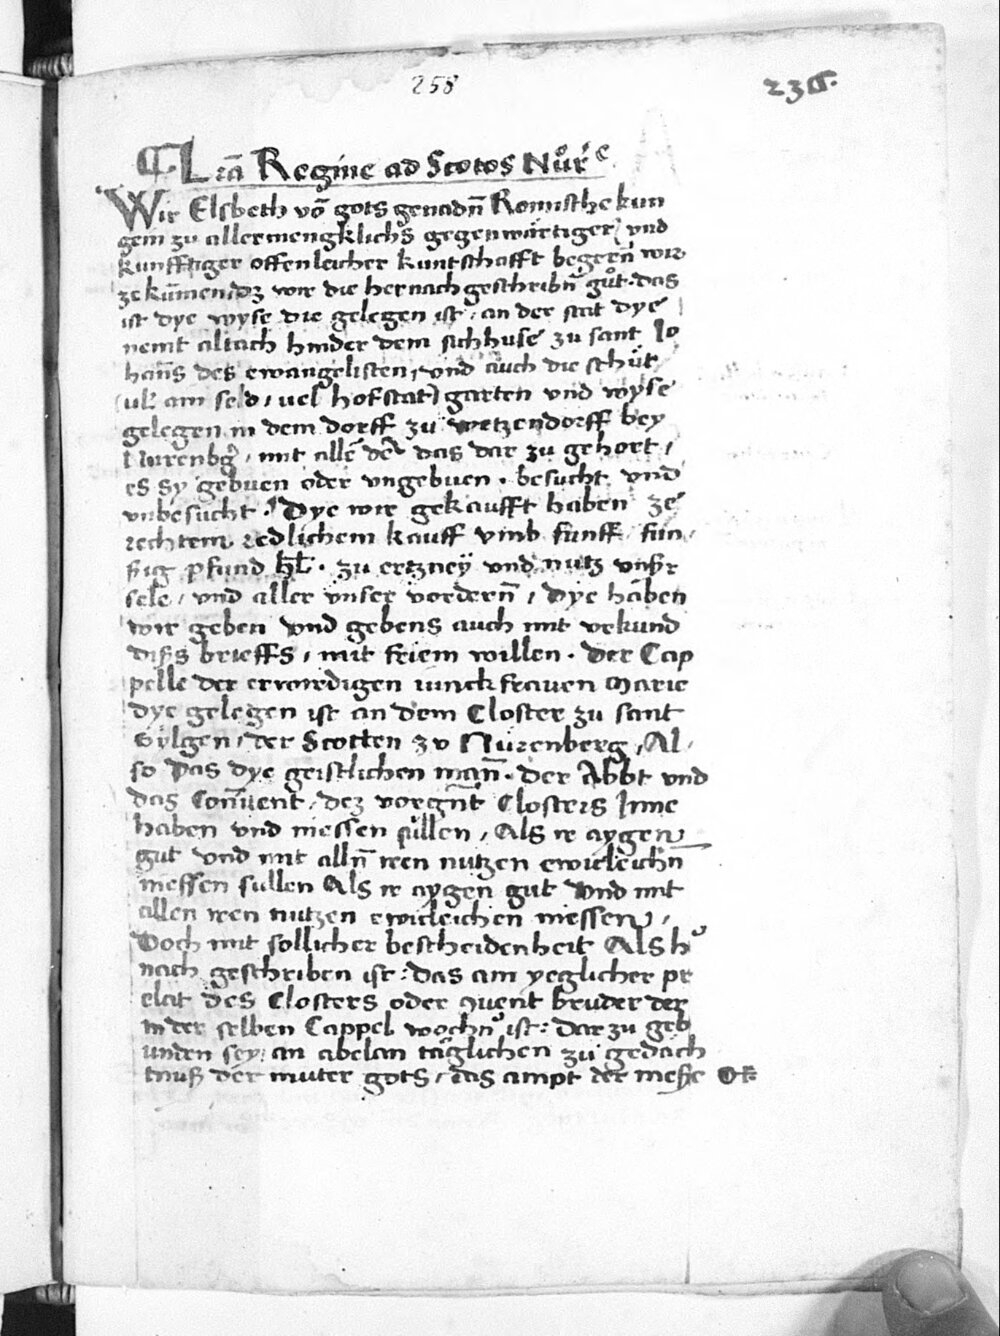 258
Lrā Regine ad Scotos Nůr
Wir Elsbeth vō gots genadn̄ Romische kun
gein zu allermengklichs gegenwärtiger und
kunfftiger offenleicher kuntschafft begern wir
ze kūmen, dz wir die hernach geschribn̄ gůt. das
ist dye wyse die gelegen ist, an der stat dye
nemt altach hinder dem sichhuse zu sant Jo
hañs des ewangelisten, und auch die schüt
(ul' am feld, uel hofstat) garten und wyse
gelegen in dem dorff zu wetzendorff bey
Nurenbg', mit alle dē das dar zu gehort,
es sy gebuen oder ungebuen. besucht und
unbesucht. Dye wir gekaufft haben ze
rechtem redlichem kauff vmb funff, fun,
fzig pfund hl. zu ertzneÿ und nutz unsr
sele, und aller unser vordern̄, Dye haben
wir geben und gebens auch mit urkund
diſs brieffs, mit friem willen. Der Cap
pelle der erwirdigen iunckfrauen Marie
dye gelegen ist an dem Closter zu sant
Gylgen, der Scotten zv Nürenberg, Al,
so das dye geistlichen man̄. der Abbt und
das Conuent, dez vorgn̄t Closters Inne
haben und niessen süllen, Als ir aygen
gut und mit alln̄ iren nutzen ewicleichn̄
niessen sullen Als ir aygen gut und mit
allen iren nutzen ewicleichen niessen,
Doch mit sollicher bescheidenheit Als h'
nach geschriben ist: das am yeglicher pr
elat des Closters oder 9uent bruder der
in der selben Cappel wochn' ist: dar zu geb
unden sey, an abelan täglichen zu gedäch
tnuß der muter gots, das ampt der meße